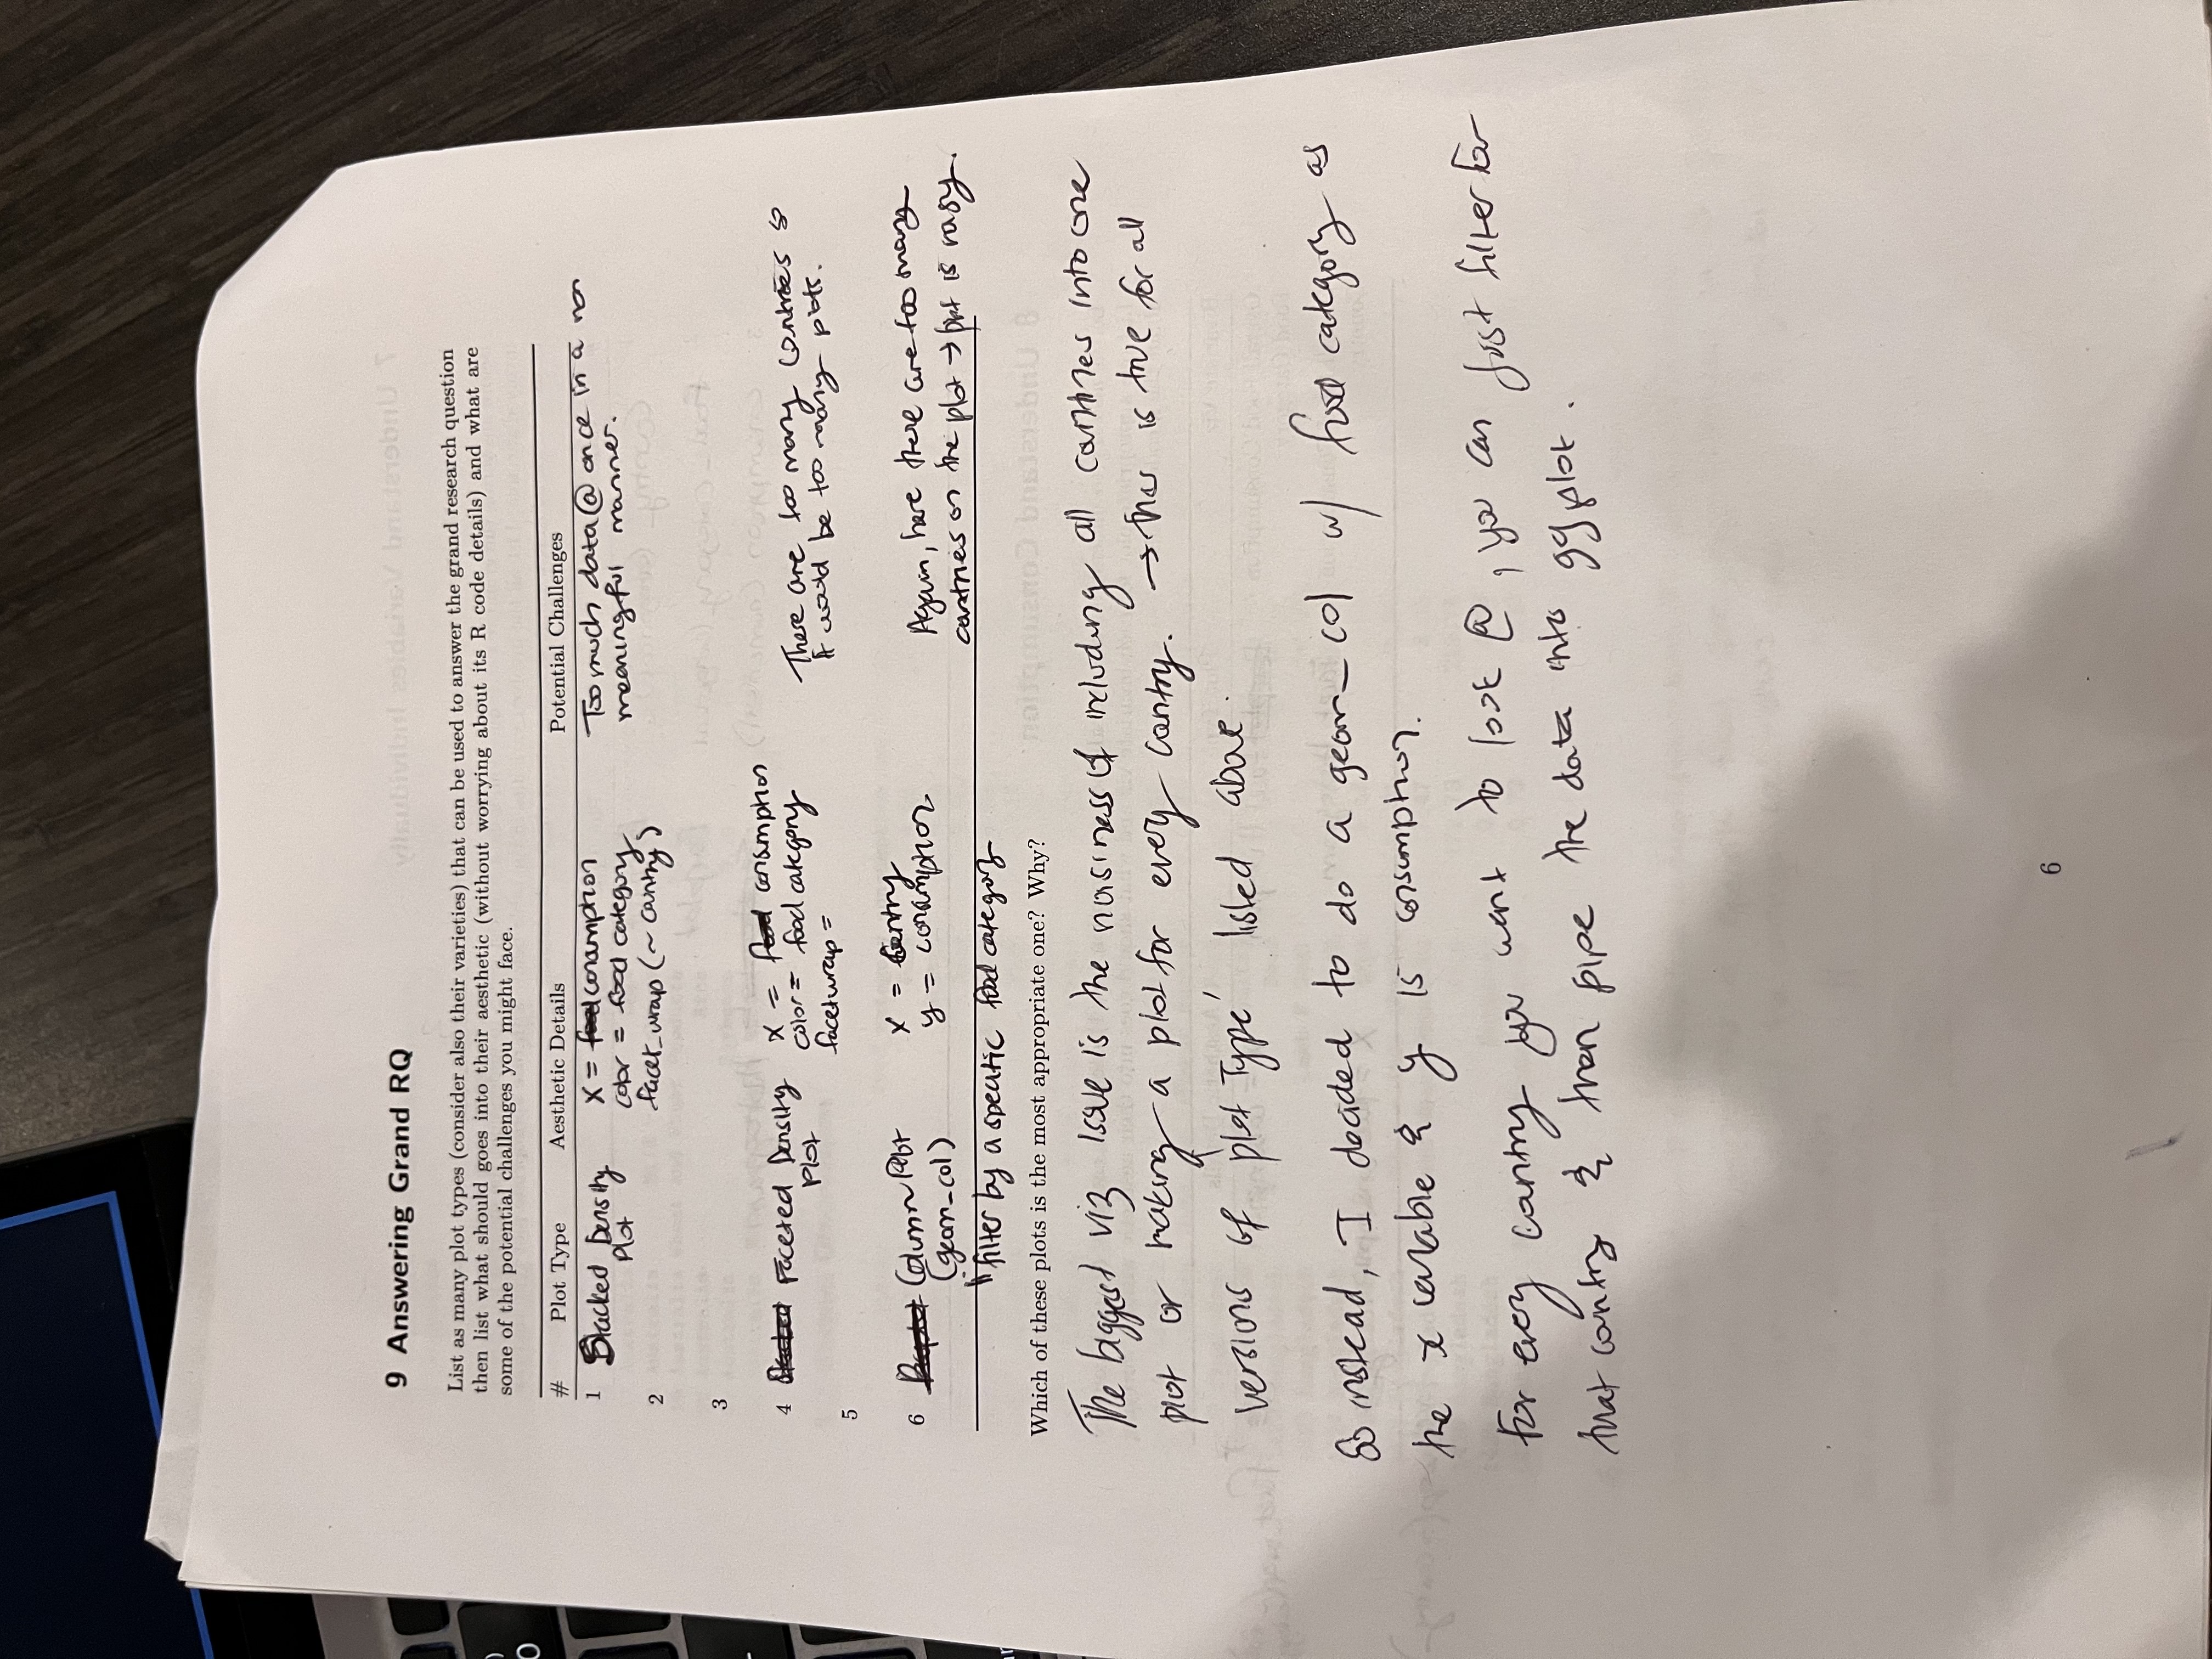 9 Answering Grand RQ
List as many plot types (consider also their varieties) that can be used to answer the grand research question
then list what should goes into their aesthetic (without worrying about its R code details) and what are
some of the potential challenges you might face.
# Plot Type Aesthetic Details Potential Challenges
1 Stacked Density X = consumption Too much data @ once in a non
Plot color = food category meaningful manner.
2 facet_wrap (~ country)
3
4 Faceted Density X = consumption There are too many countries so
Plot color = food category it would be too many plots.
facetwrap =
5
6 Column Plot X = Country Again, here there are too many
(geom_col) y = consumption countries on the plot → plot is noisy.
filter by a specific food category
Which of these plots is the most appropriate one? Why?
The biggest viz issue is the noisiness of including all countries into one
plot or making a plot for every country. → this is true for all
versions of 'plot Type' listed above.
So instead, I decided to do a geom_col w/ food category as
the x variable & y is consumption.
For every country you want to look @, you can just filter for
that country & then pipe the data into ggplot.
6